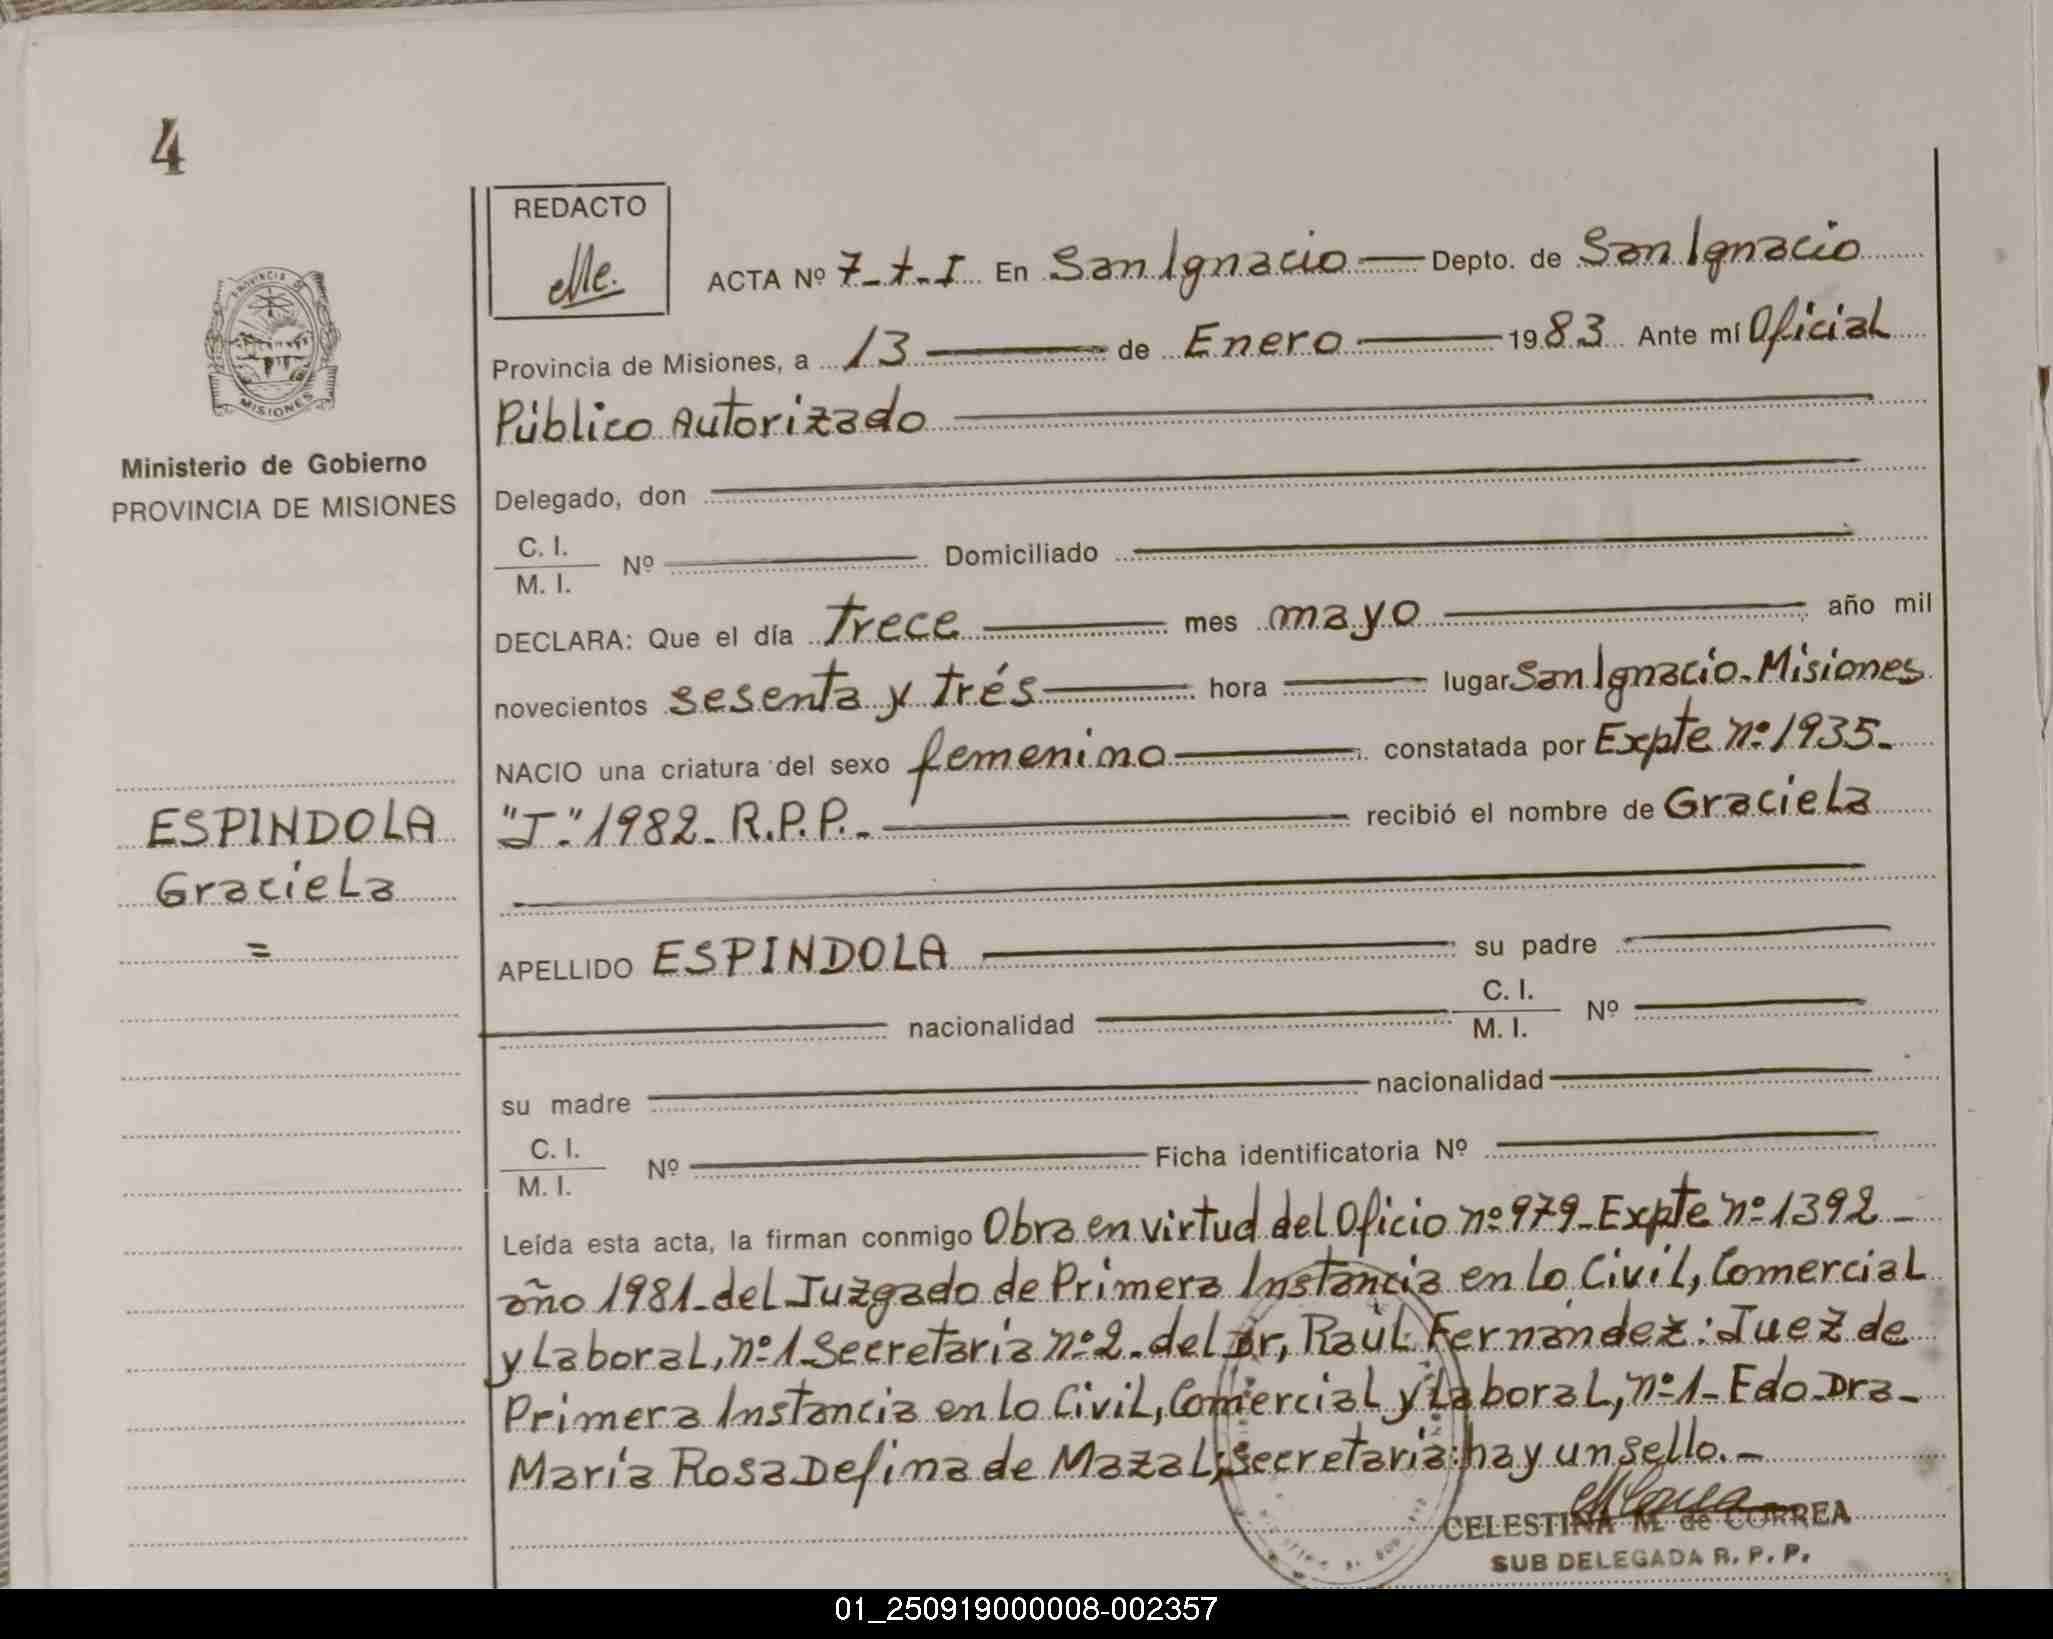 4
REDACTO
Me.
ACTA Nº 7-t-I En San Ignacio — Depto. de San Ignacio
PROVINCIA DE
MISIONES
Provincia de Misiones, a 13 — de Enero — 1983. Ante mí Oficial
Público Autorizado
Ministerio de Gobierno
PROVINCIA DE MISIONES
Delegado, don
C. I.
M. I. Nº Domiciliado
DECLARA: Que el día Trece — mes mayo — año mil
novecientos sesenta y trés — hora — lugar San Ignacio. Misiones
NACIO una criatura del sexo femenino — constatada por Expte nº 1935.
"J." 1982. R.P.P. — recibió el nombre de Graciela
ESPINDOLA
Graciela
=
APELLIDO ESPINDOLA — su padre
nacionalidad C. I.
M. I. Nº
su madre — nacionalidad
C. I.
M. I. Nº — Ficha identificatoria Nº
Leída esta acta, la firman conmigo Obra en virtud del Oficio nº 979-Expte nº 1392-
año 1981-del Juzgado de Primera Instancia en lo Civil, Comercial
y Laboral, nº 1-Secretaria nº 2. del Dr, Raúl Fernández: Juez de
Primera Instancia en lo Civil, Comercial y Laboral, nº 1- Edo. Dra-
María Rosa Defina de Mazal; Secretaria: hay un sello.-
CELESTINA M. de CORREA
SUB DELEGADA R. P. P.
01_250919000008-002357